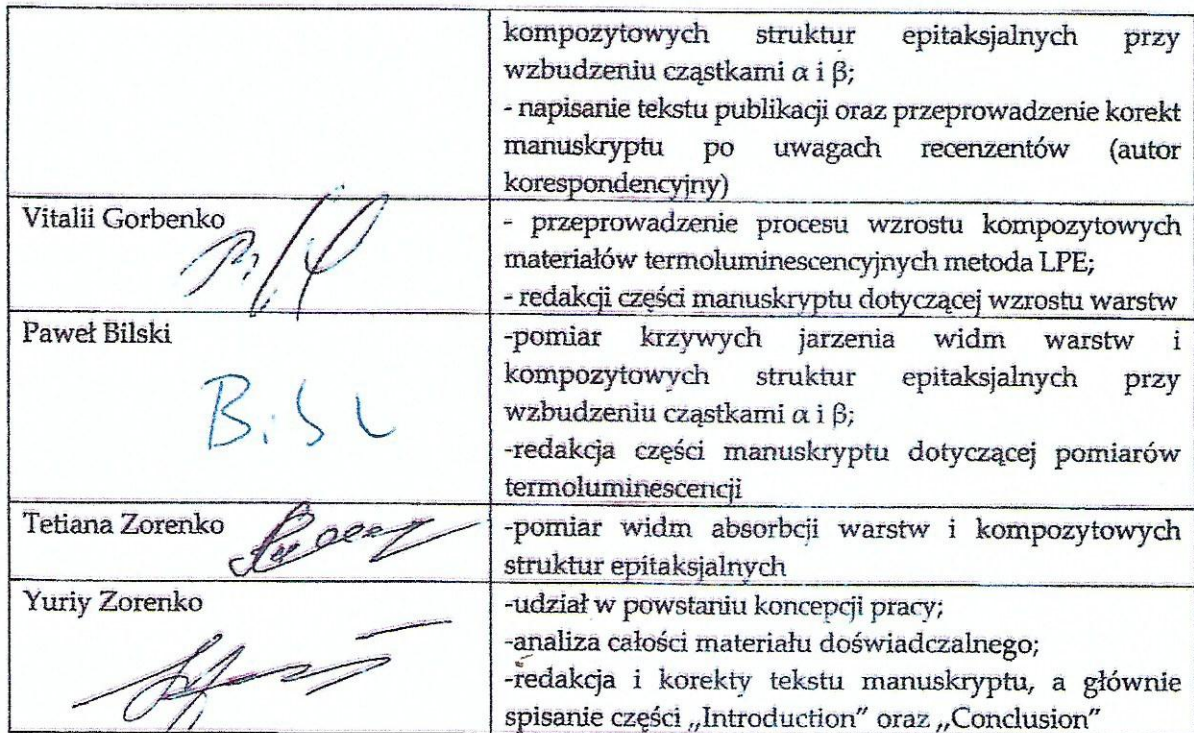 kompozytowych struktur epitaksjalnych przy
wzbudzeniu cząstkami α i β;
- napisanie tekstu publikacji oraz przeprowadzenie korekt
manuskryptu po uwagach recenzentów (autor
korespondencyjny)
Vitalii Gorbenko
- przeprowadzenie procesu wzrostu kompozytowych
materiałów termoluminescencyjnych metoda LPE;
- redakcji części manuskryptu dotyczącej wzrostu warstw
Paweł Bilski
-pomiar krzywych jarzenia widm warstw i
kompozytowych struktur epitaksjalnych przy
wzbudzeniu cząstkami α i β;
-redakcja części manuskryptu dotyczącej pomiarów
termoluminescencji
Tetiana Zorenko
-pomiar widm absorbcji warstw i kompozytowych
struktur epitaksjalnych
Yuriy Zorenko
-udział w powstaniu koncepcji pracy;
-analiza całości materiału doświadczalnego;
-redakcja i korekty tekstu manuskryptu, a głównie
spisanie części „Introduction” oraz „Conclusion”